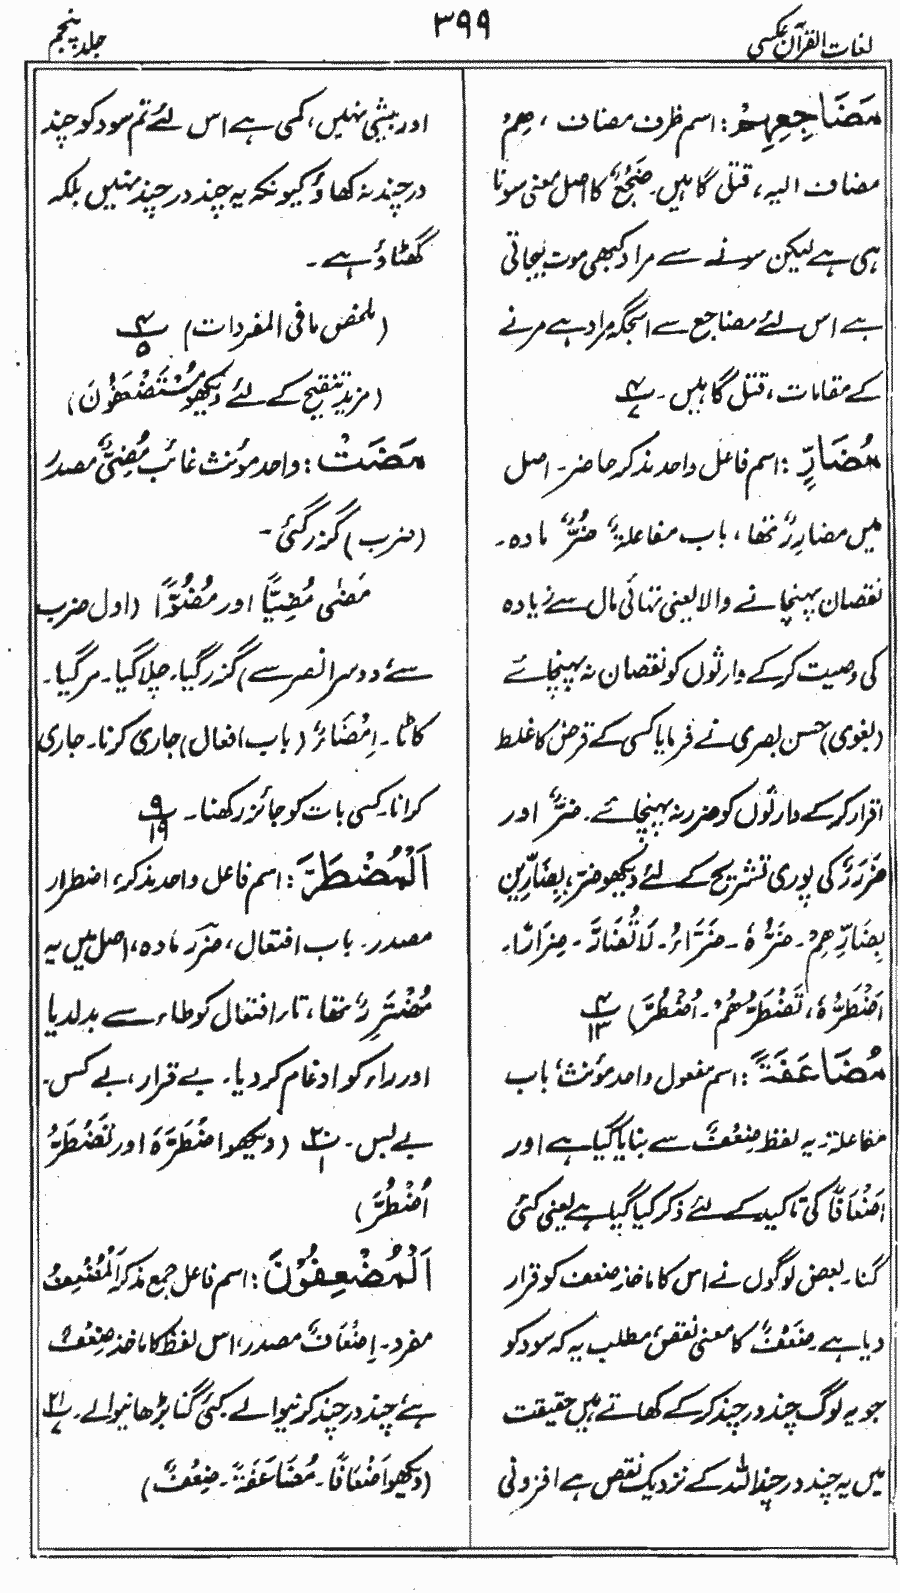 لغات القرآن عکسی
۳۹۹
جلد پنجم
مَضَاجِعِہِمْ: اسم ظرف مضاف، ھِمْ
مضاف الیہ، قتل گاہیں۔ ضَجْعٌ کا اصل معنی سونا
ہی ہے لیکن سونے سے مراد کبھی موت لیجاتی
ہے اس لئے مضاجع سے اسجگہ مراد ہے مرنے
کے مقامات، قتل گاہیں۔ ۴/۷
مُضَارٍّ: اسم فاعل واحد مذکر حاضر۔ اصل
میں مضارِرٌ تھا، باب مفاعلۃٌ ضَرٌّ مادہ۔
نقصان پہنچانے والا یعنی تہائی مال سے زیادہ
کی وصیت کرکے وارثوں کو نقصان نہ پہنچائے
(بغوی) حسن بصری نے فرمایا کسی کے قرض کا غلط
اقرار کرکے وارثوں کو ضرر نہ پہنچائے۔ ضَرٌّ اور
ضَرَرٌ کی پوری تشریح کے لئے دیکھو ضرّ، بِضَارِّیْنَ
بِضَارِّھِمْ۔ ضَرُّہٗ۔ ضَرَّاءُ۔ لَا تُضَارَّ۔ ضِرَارًا۔
اَضْطَرُّہٗ، نَضْطَرُّھُمْ۔ اُضْطُرَّ) ۴/۱۳
مُضَاعَفَۃً: اسم مفعول واحد مؤنث، باب
مفاعلۃ۔ یہ لفظ ضِعْفٌ سے بنایا گیا ہے اور
اَضْعَافًا کی تاکید کے لئے ذکر کیا گیا ہے یعنی کئی
گنا۔ بعض لوگوں نے اس کا ماخذ ضعف کو قرار
دیا ہے۔ ضَعْفٌ کا معنی نقص، مطلب یہ کہ سود کو
جو یہ لوگ چند در چند کرکے کھاتے ہیں حقیقت
میں یہ چند در چند اللہ کے نزدیک نقص ہے افزونی
اور بیشی نہیں، کمی ہے اس لئے تم سود کو چند
در چند نہ کھاؤ کیونکہ یہ چند در چند نہیں بلکہ
گھٹاؤ ہے۔
(ملخص ما فی المفردات) ۴/۵
(مزید تنقیح کے لئے دیکھو مُسْتَضْعَفُوْنَ)
مَضَتْ: واحد مؤنث غائب مُضِیٌّ مصدر
(ضرب) گزر گئی۔
مَضٰی مُضِیًّا اور مُضُوًّا (اول ضرب
سے دوسرا نصر سے) گزر گیا۔ چلا گیا۔ مر گیا۔
کاٹا۔ اِمْضَاءٌ (باب افعال) جاری کرنا۔ جاری
کرانا۔ کسی بات کو جائز رکھنا۔ ۹/۱۹
اَلْمُضْطَرَّ: اسم فاعل واحد مذکر، اضطرار
مصدر۔ باب افتعال، ضرر مادہ، اصل میں یہ
مُضْتَرِرٌ تھا، تاء افتعال کو طاء سے بدلدیا
اور راء کو ادغام کر دیا۔ بے قرار، بے کس۔
بے بس۔ ۲۰/۱ (دیکھو اضْطُرَّہٗ اور نَضْطَرُّ
اُضْطُرَّ)
اَلْمُضْعِفُوْنَ: اسم فاعل جمع مذکر اَلْمُضْعِفُ
مفرد۔ اِضْعَافٌ مصدر، اس لفظ کا ماخذ ضِعْفٌ
ہے، چند در چند کرنیوالے کئی گنا بڑھانیوالے۔ ۲۱/۷
(دیکھو اَضْعَافًا۔ مُضَاعَفَۃً۔ ضِعْفٌ)